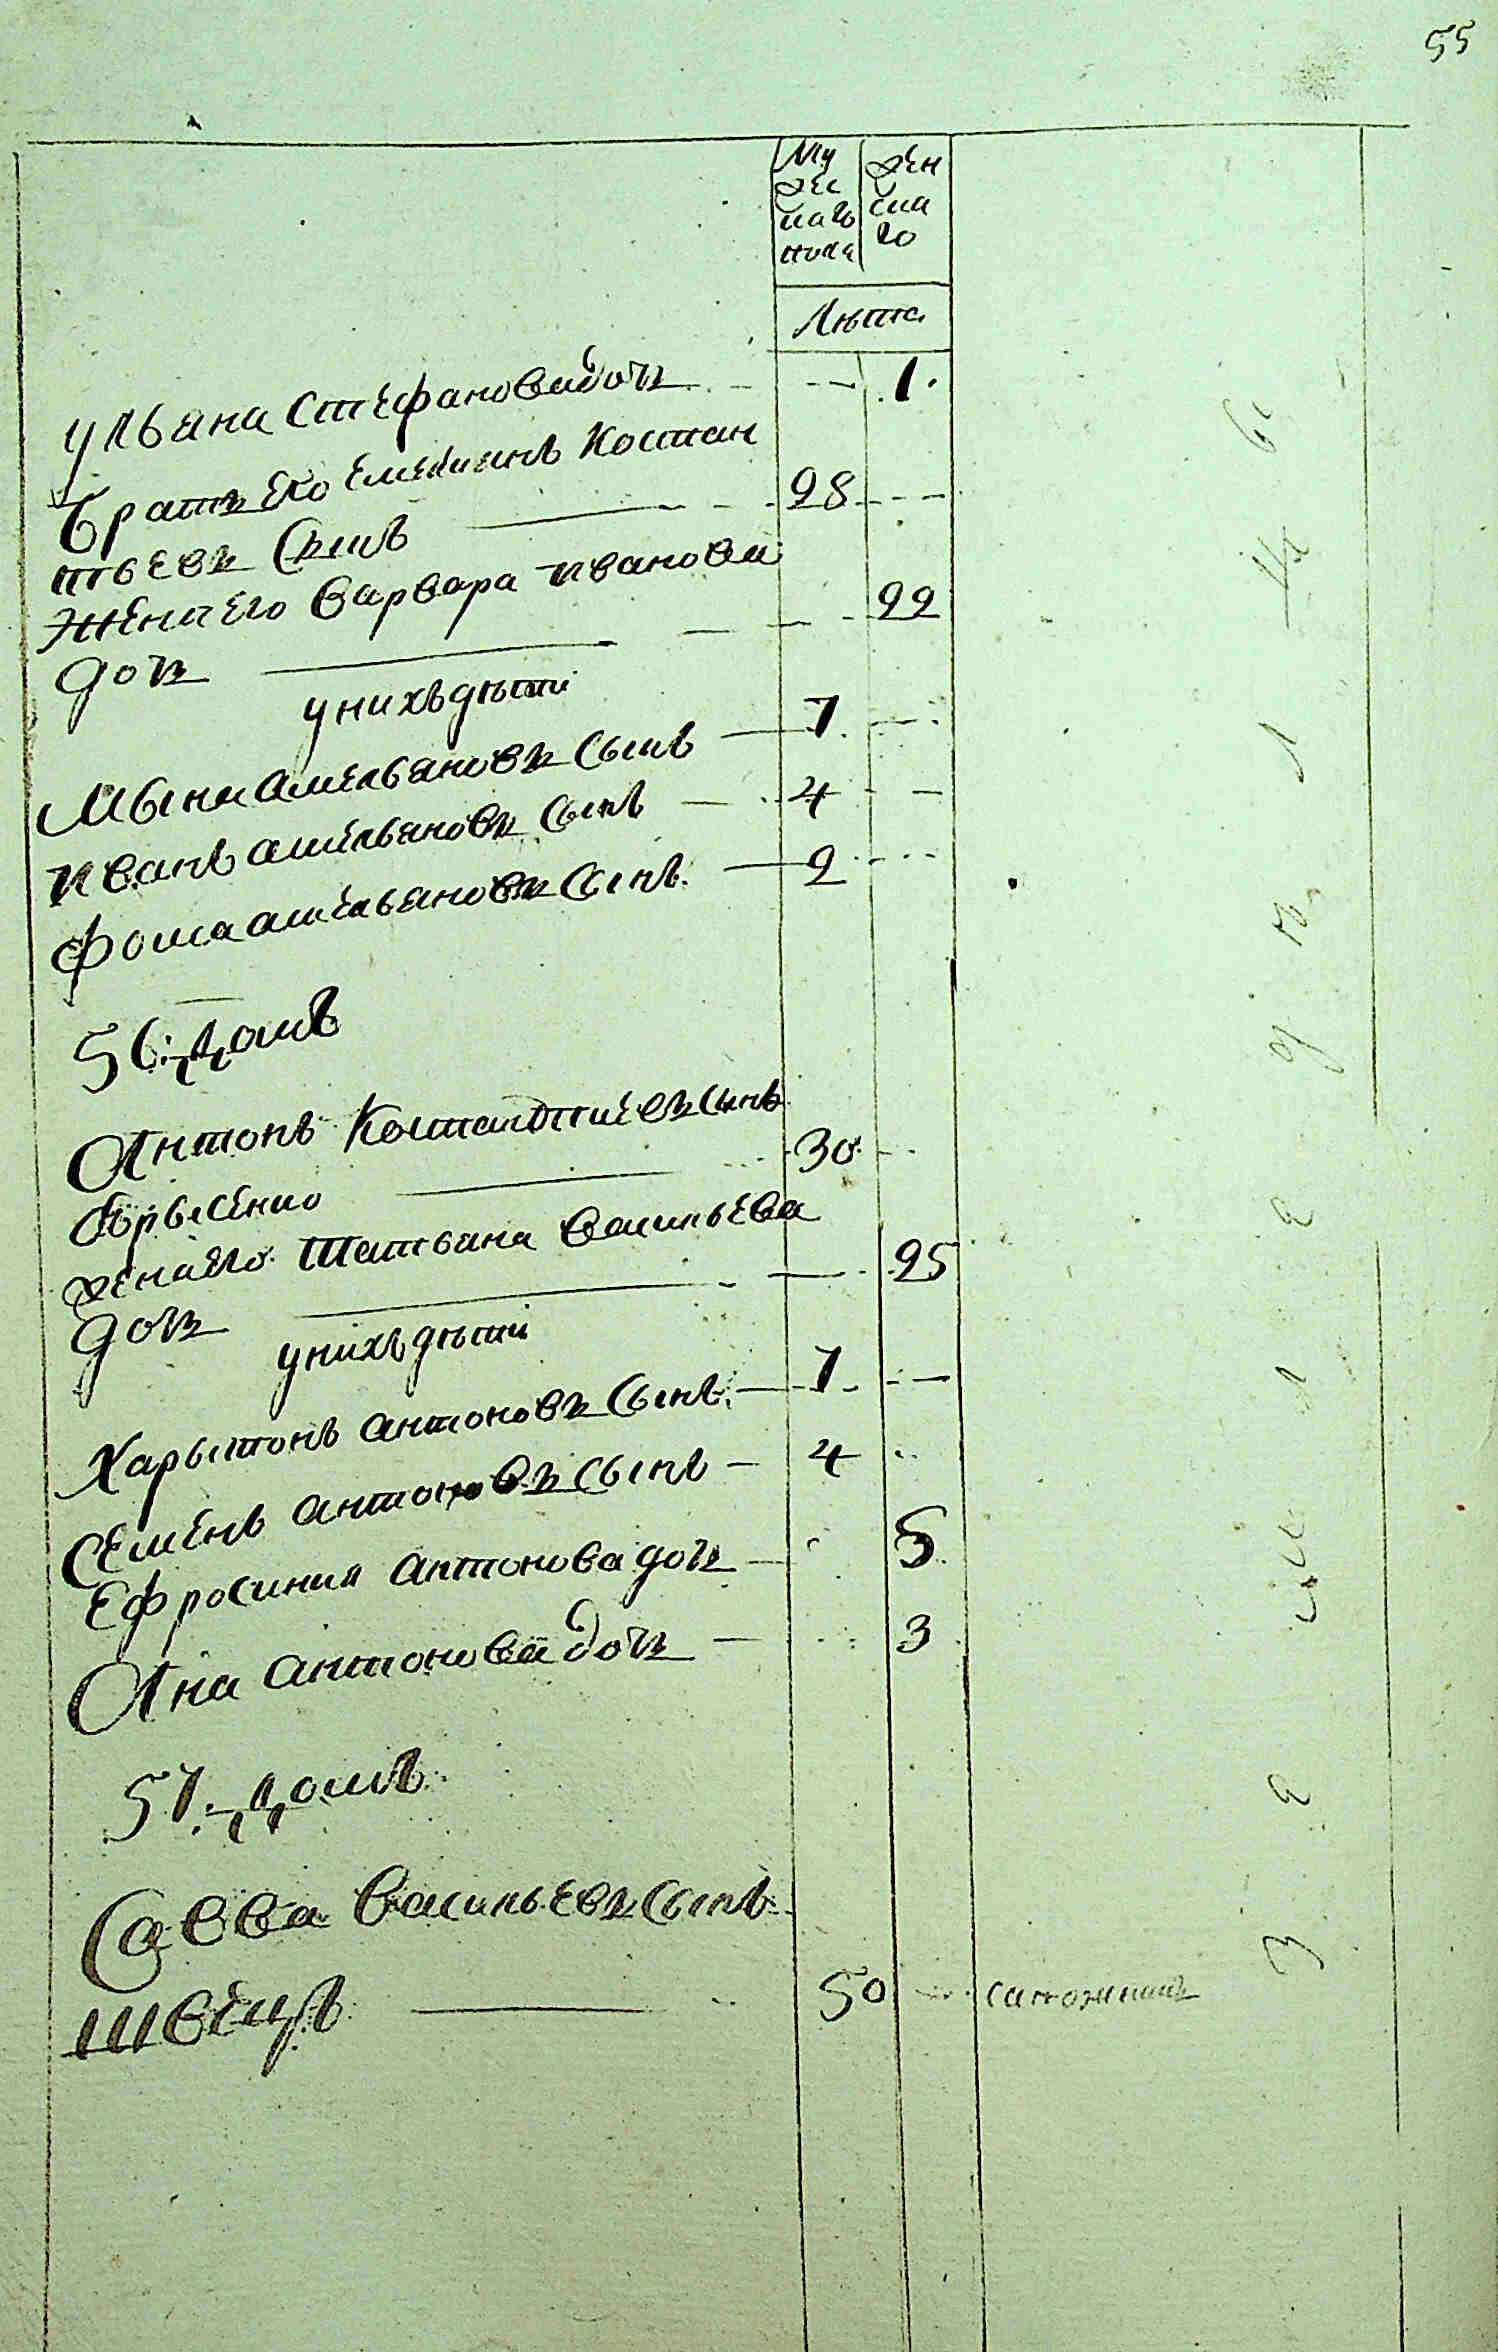 55
Му
жес
каго
пола
жен
ска
го
Лѣта
ульяна Стефанова дочъ 1
братъ его Емелиянъ Костан
тьевъ Сынъ 28
жена его варвара иванова
дочъ 22
у нихъ дѣти
Мына амельяновъ Сынъ 7
иванъ амельяновъ Сынъ 4
фома амельяновъ Сынъ 2
56: домъ
Антонъ Костантиевъ Сынъ
30
жена его татьяна васильева
дочъ 25
у нихъ дѣти
Харытонъ антоновъ Сынъ 7
Семенъ антоновъ Сынъ 4
Ефросиния антонова дочъ 5
Ана антонова дочъ 3
57: домъ
Савва васильевъ Сынъ
швецъ 50 сапожникъ